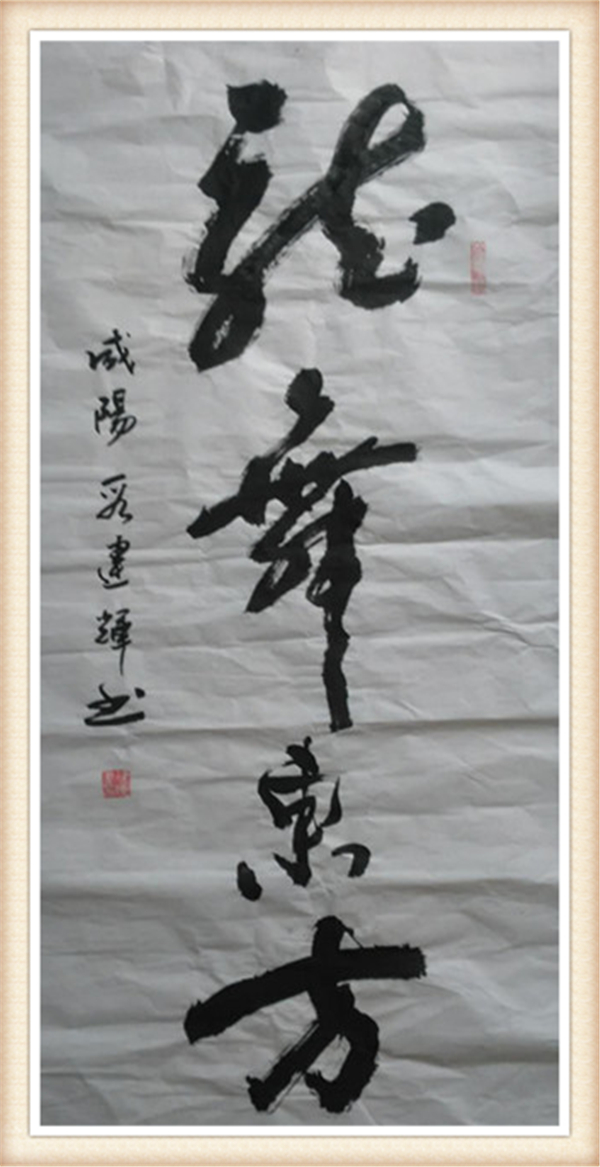 龍舞東方
咸陽 建輝书